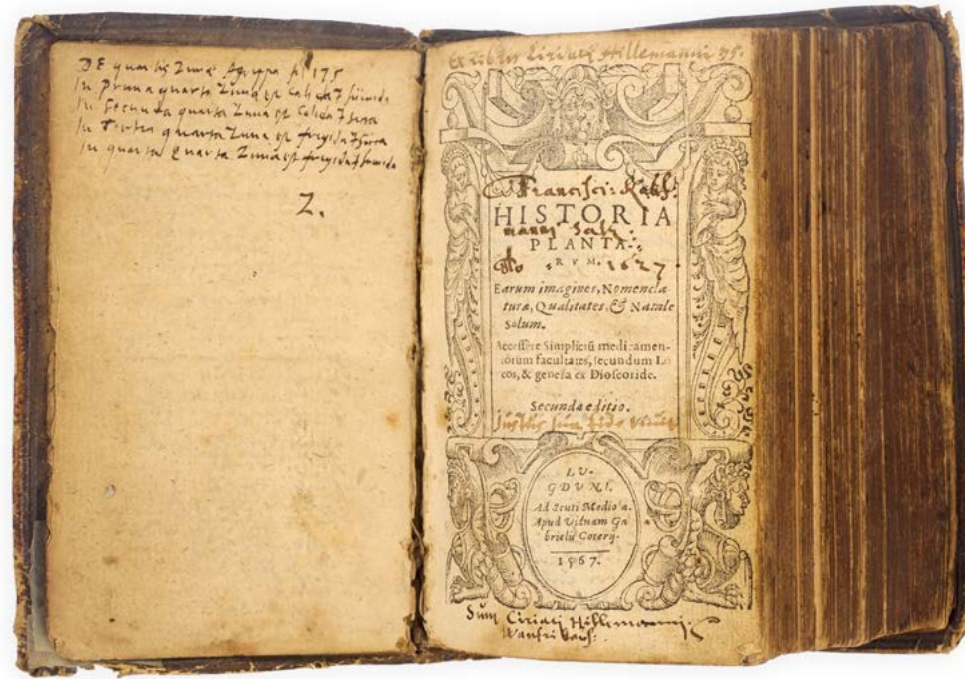 DE quartis Lunæ Agrippa fo 175
In Prima quarta Luna est Calida & humida
In Secunda quarta Luna est Calida & sicca
In Tertia quarta Luna est frigida & sicca
In quarta Quarta Luna est frigida & humida
2.
Ex libris Ciriaci Hillemanni 75.
Francisci:
HISTORIA
PLANTA-
RVM.
1627.
Earum imagines, Nomencla
turæ, Qualitates, & Natale
Solum.
Accessêre Simpliciũ medicamen-
torum facultates, secundum Lo
cos, & genera ex Dioscoride.
Secunda editio.
Justus
LV-
GDVNI.
Ad Scuti Mediola.
Apud Viduam Ga
brielis Coterij.
1567.
Sum Ciriaci Hillemanni.